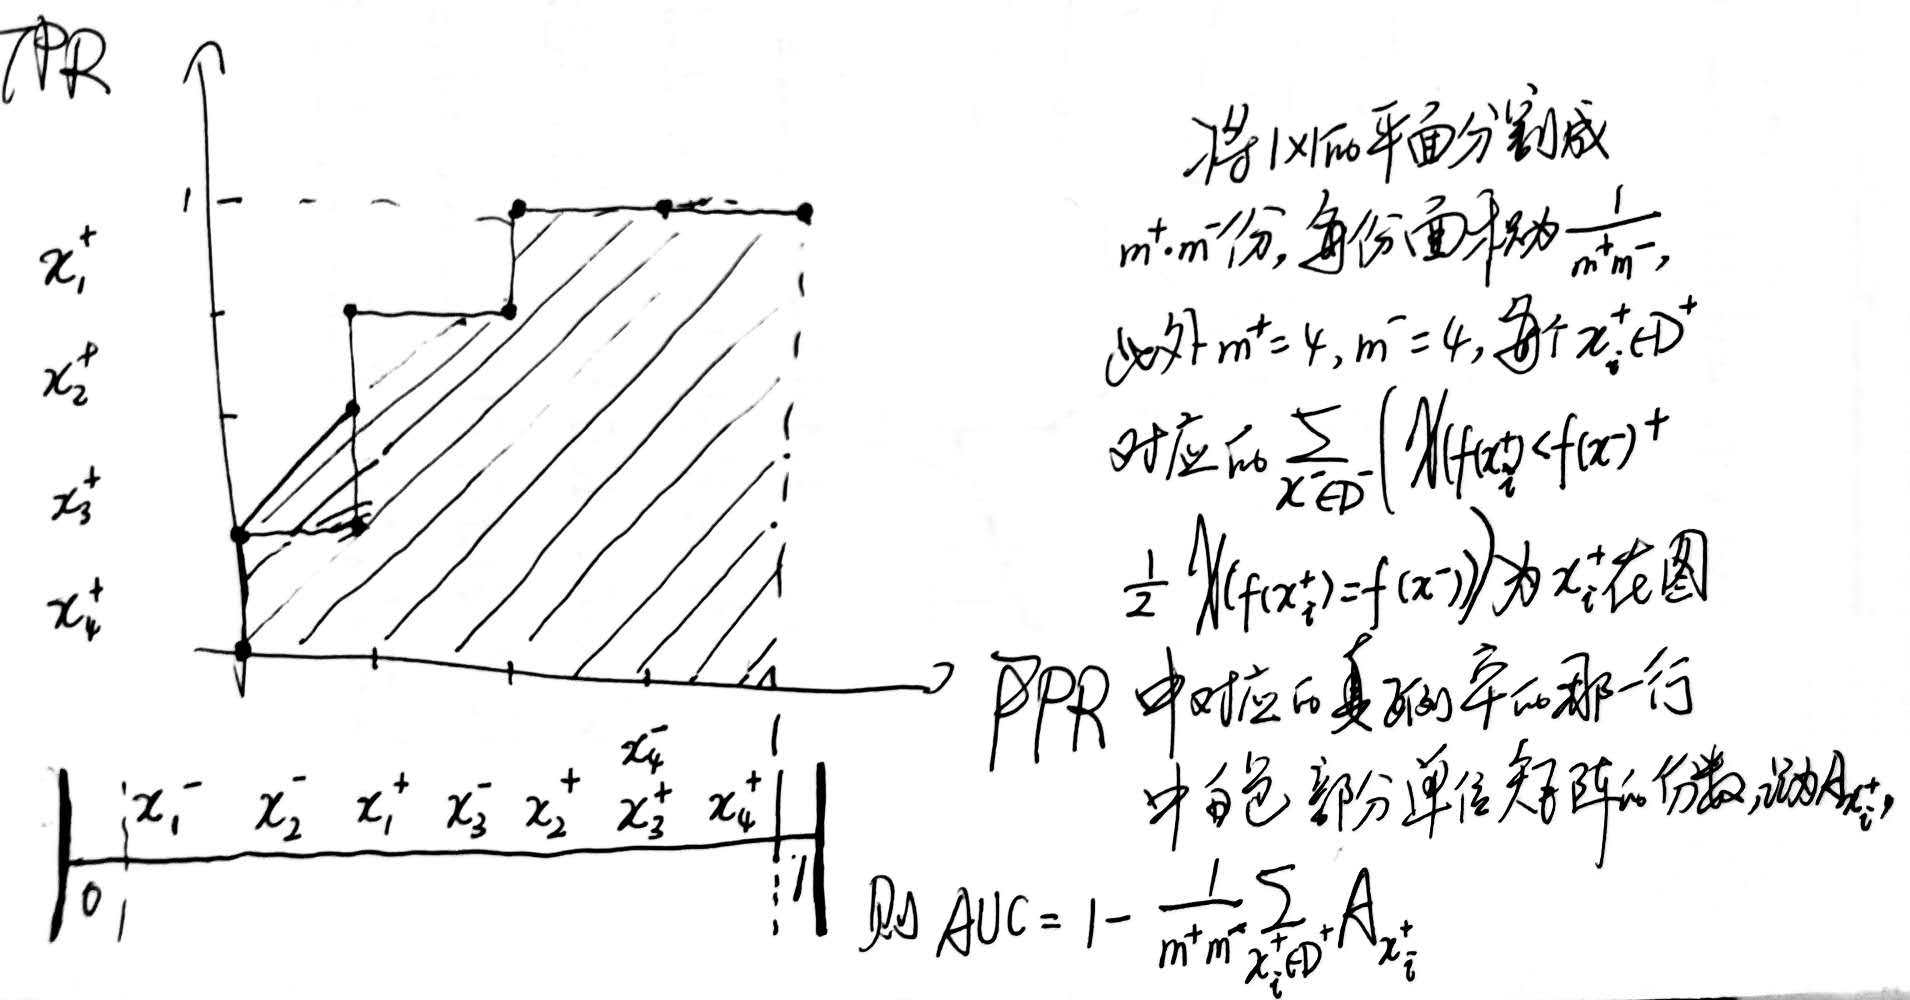 TPR
1
x₁⁺
x₂⁺
x₃⁺
x₄⁺
1
FPR
x₄⁻
x₁⁻ x₂⁻ x₁⁺ x₃⁻ x₂⁺ x₃⁺ x₄⁺
0 1
将1×1的平面分割成
m⁺·m⁻份,每份面积为 1/(m⁺m⁻),
此外m⁺=4,m⁻=4,每个xᵢ⁺∈D⁺
对应的 ∑_{x⁻∈D⁻} (𝕀(f(xᵢ⁺)<f(x⁻)+
1/2 𝕀(f(xᵢ⁺)=f(x⁻)))为xᵢ⁺在图
中对应的真正例率的那一行
中白色部分单位矩阵的份数,记为A_{xᵢ⁺},
则AUC=1-1/(m⁺m⁻) ∑_{xᵢ⁺∈D⁺} A_{xᵢ⁺}